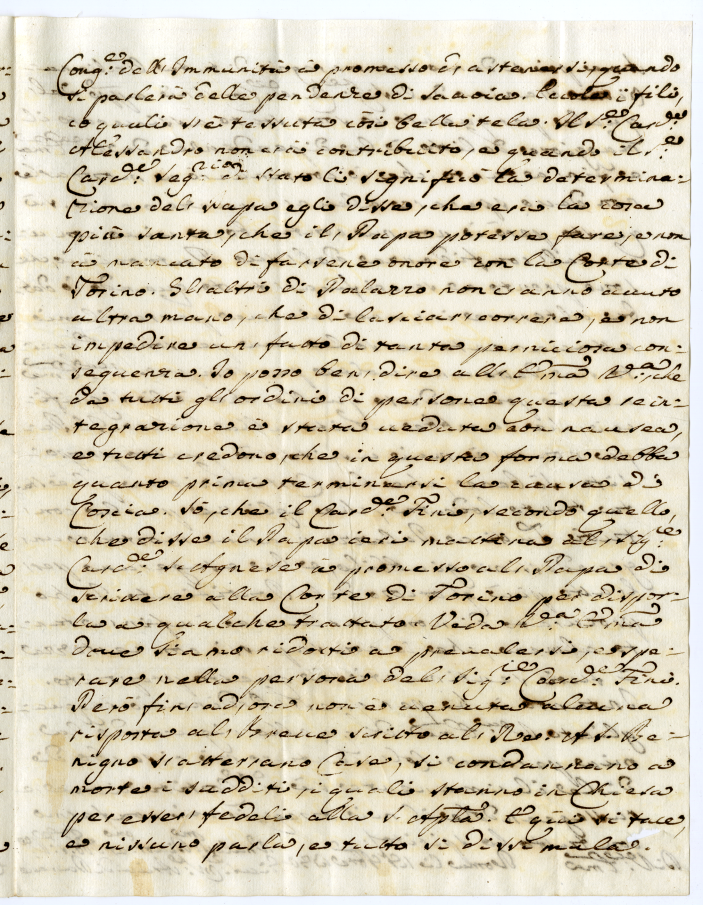 Cong.ne dell'Immunità à promesso di astenersi, quando
si parlerà delle pendenze di Savoia. Eccole i fili,
co quali s'è tessuta così bella tela. Il S.re Card.le
Alessandro non ci à contribuito, e quando il S.re
Card.le Seg.rio di Stato li significò la determina-
zione del Papa egli disse, che era la cosa
più santa, che il Papa potesse fare, e non
à mancato di farsene onore con la Corte di
Torino. Gl'altri di Palazzo non ci anno avuto
altra mano, che di lasciar correre, e non
impedire un fatto di tanta perniciosa con-
seguenza. Io posso ben dire all'E.ma V.ra, che
da tutti gl'ordini di persone questa rein-
tegrazione è stata veduta con nausea,
e tutti credono, che in questa forma debba
quanto prima terminarsi la causa di
Coscia. Sò, che il Card.le Fini, secondo quello,
che disse il Papa ieri mattina al Sig.re
Card.le S. Agnese à promesso al Papa di
scrivere alla Corte di Torino per dispor-
la a qualche trattato. Veda V.ra E.ma
dove siamo ridotti a prevalersi, e spe-
rare nella persona del Sig.re Card.le Fini.
Però fin adora non è venuta alcuna
risposta al Breve scritto al Re. A S. Be-
nigno s'atterrano Case, si condannano a
morte i sudditi, i quali stanno in Chiesa
per esser fedeli alla S. Ap.lca. E quì si tace,
e nissuno parla, e tutto si dissimula.